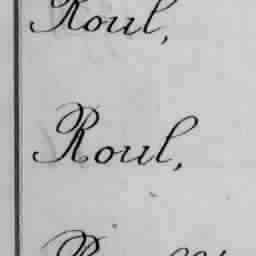 Roul,
Roul,